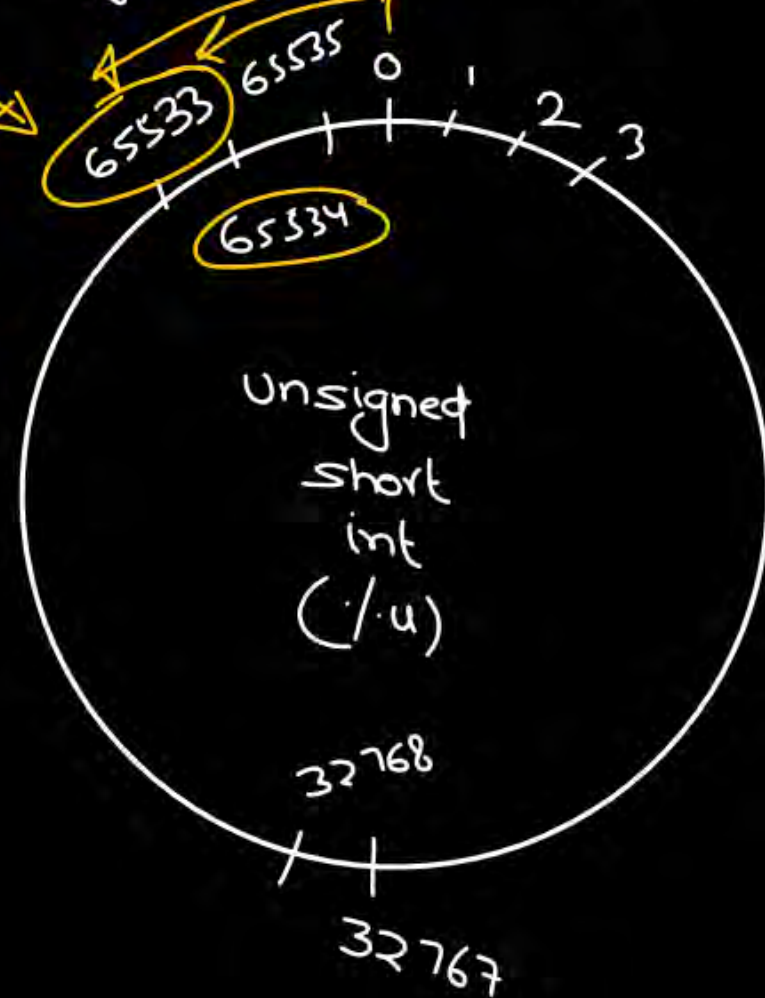 65535 0 1 2 3
65533
65534
unsigned
short
int
(%u)
32768
32767